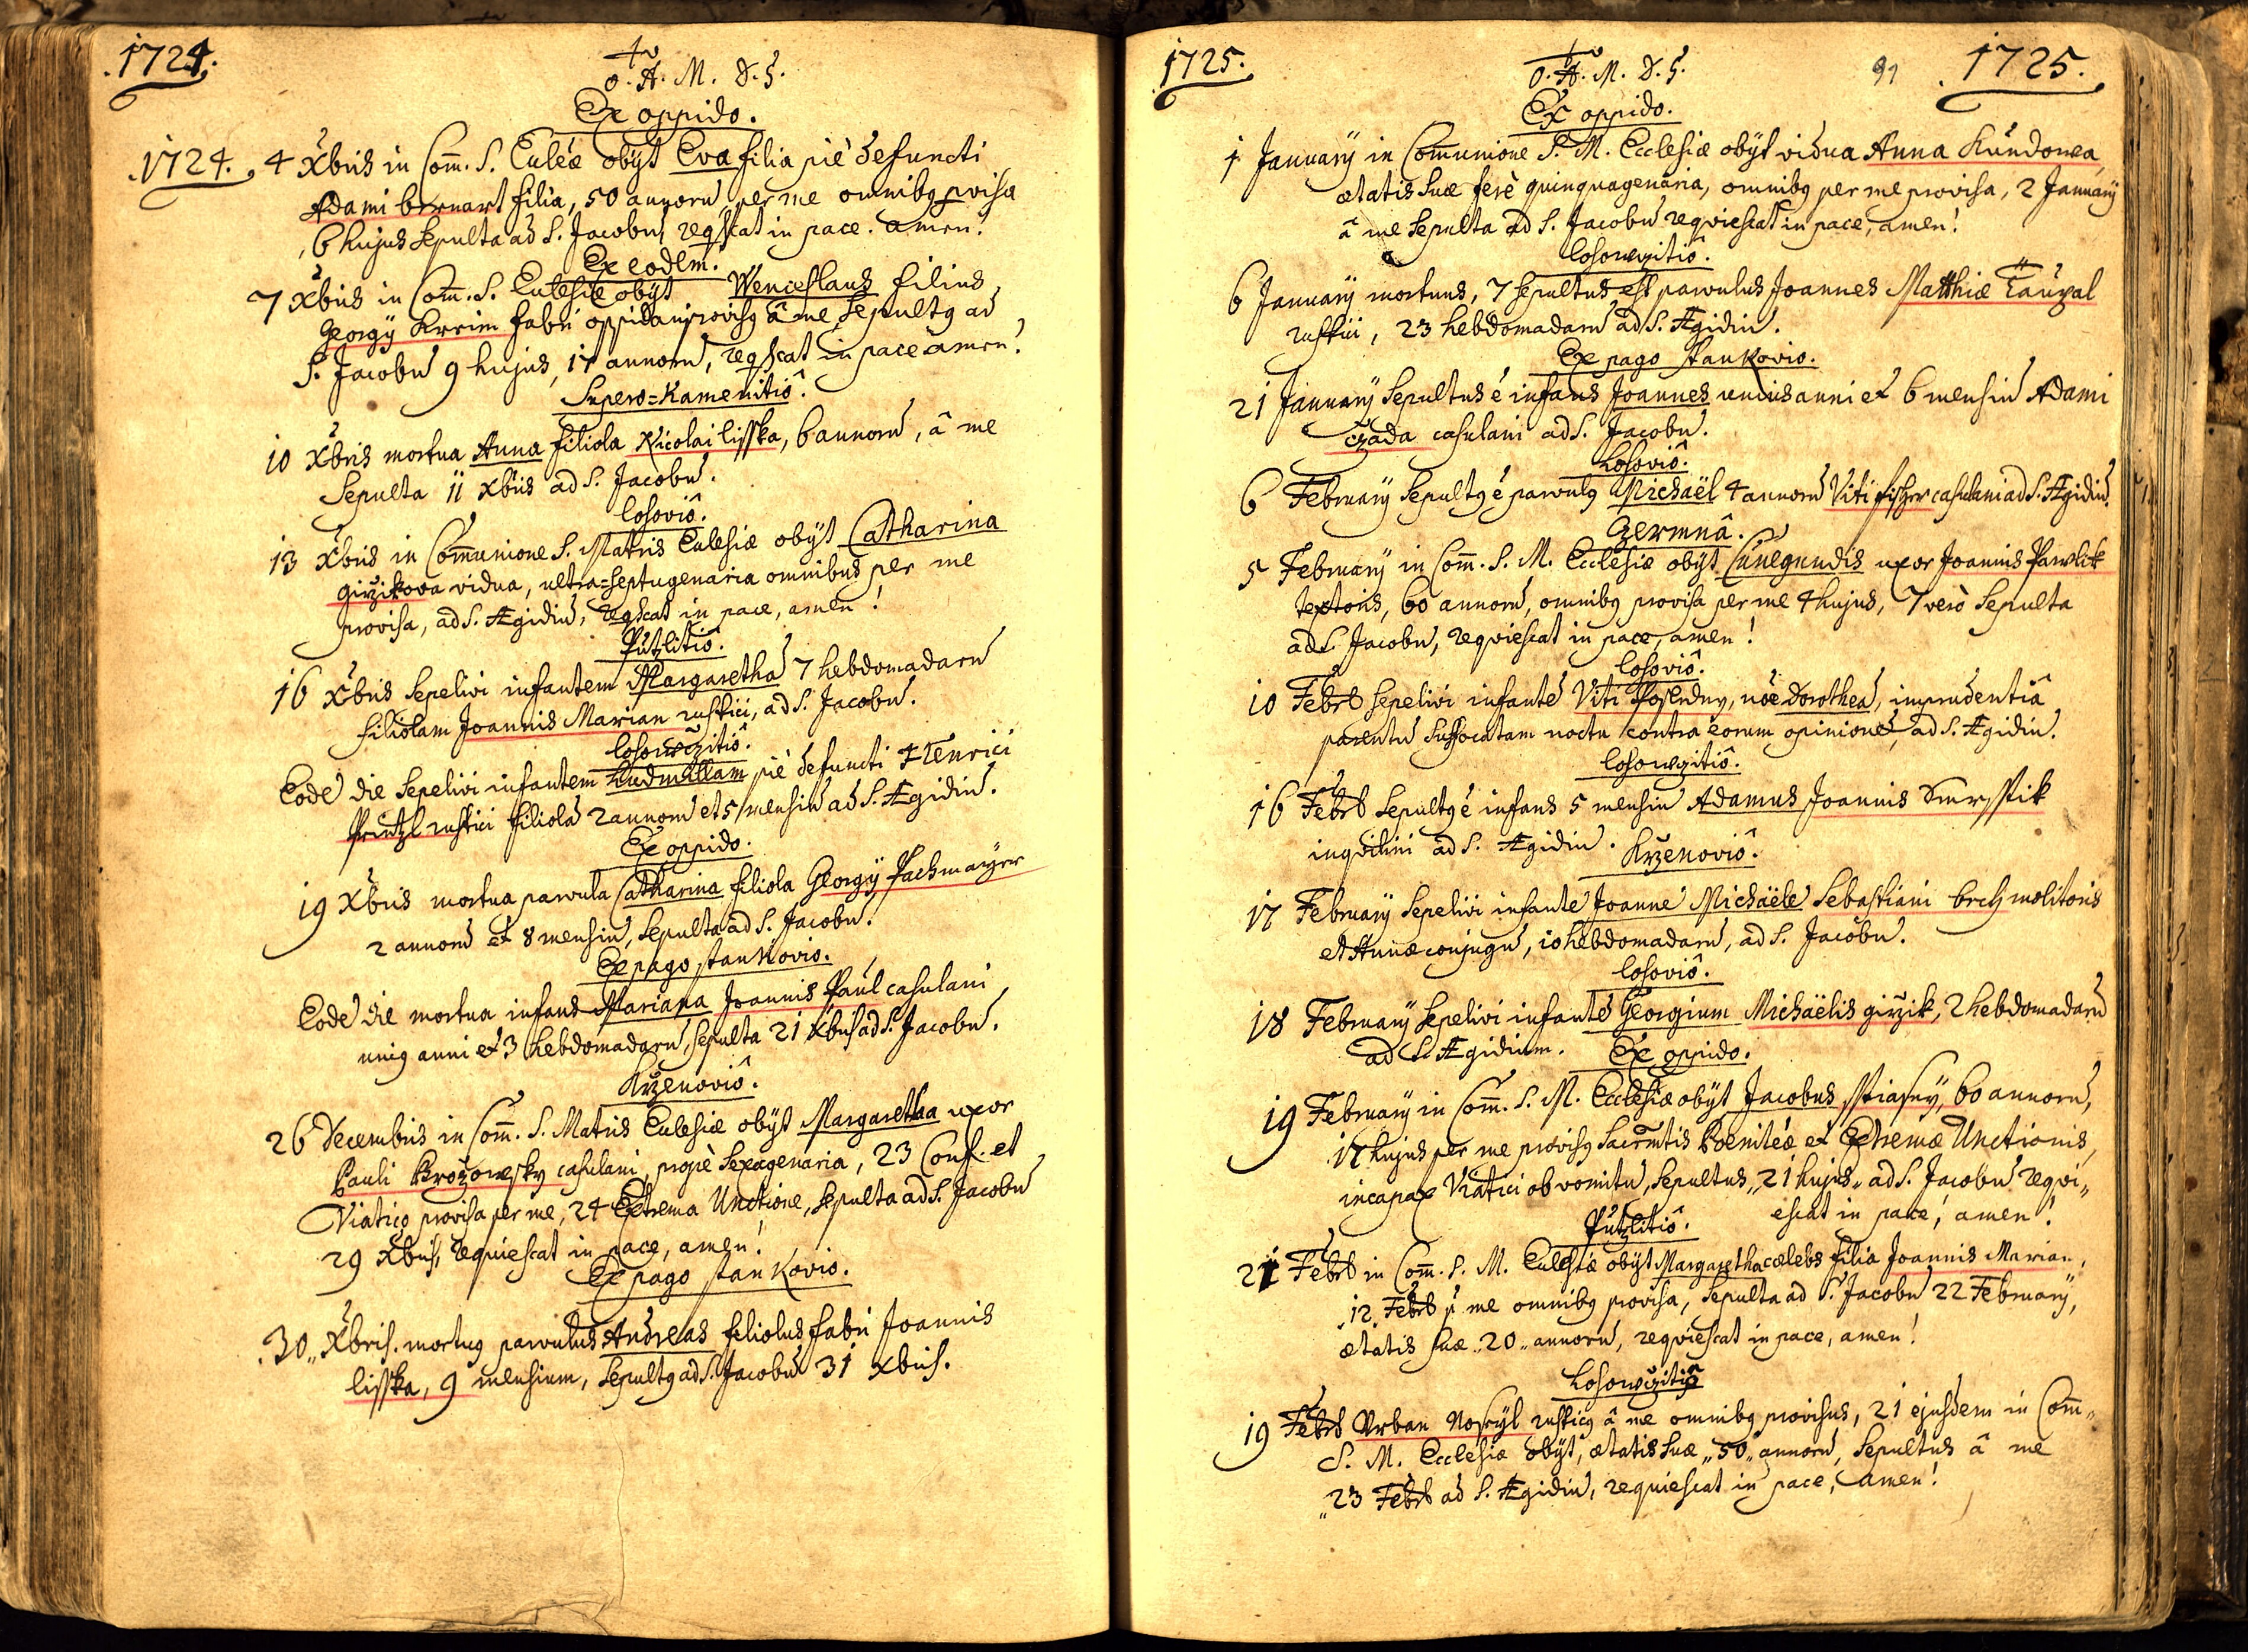 1724.
O. A. M. D. G.
Ex oppido.
1724. 4 Xbris in Com̃. S. Eccleæ obÿt Eva filia piè defuncti
Adami bernart filia, 50 annorũ per me omnibq provisa
6 hujus sepulta ad S. Jacobũ, reqscat in pace. amen!
Ex eodem.
7 Xbris in Com̃. S. Ecclesiæ obÿt Wenceslaus filius
Georgÿ Kreim fabri oppidani provisq â me, sepultq ad
S. Jacobũ 9 hujus, 17 annorũ, reqscat in pace amen!
Supero=Kamenitiô.
10 Xbris mortua Anna filiola Nicolai lisska, 6 annorũ, â me
Sepulta 11 Xbris ad S. Jacobũ.
losoviô.
13 Xbris in Com̃unione S. Matris Ecclesiæ obÿt Catharina
girzikova vidua, ultra=septugenaria omnibus per me
provisa, ad S. Ægidiũ, reqscat in pace, amen!
Putzlitiô.
16 Xbris sepelivi infantem Margarethã 7 hebdomadarũ
filiolam Joannis Marian rustici, ad S. Jacobũ.
losowczitiô.
Eodẽ die sepelivi infantem Ludmillam piè defuncti Henrici
Printzl rustici filiolã 2 annorũ et 5 mensiũ ad S. Ægidiũ.
Ex oppido.
19 Xbris mortua parvula Catharina filiola Georgÿ Pachmaÿer
2 annorũ et 8 mensiũ, sepulta ad S. Jacobũ.
Ex pago stankovio.
Eodẽ die mortua infans Mariana Joannis Paul casulani
uniq anni et 3 hebdomadarũ, sepulta 21 Xbris ad S. Jacobũ.
Krzenoviô.
26 Decembris in Com̃. S. Matris Ecclesiæ obÿt Margaretha uxor
Pauli Brozowsky casulani, propè sexagenaria, 23 Conf. et
Viatico provisa per me, 24 Extrema Unctione, sepulta ad S. Jacobũ
29 Xbris, requiescat in pace, amen!
Ex pago stankovio.
30 Xbris. mortuq parvulus Andreas filiolus fabri Joannis
lisska, 9 mensium, sepultq ad S. Jacobũ 31 Xbris.
1725.
O. A. M. D. G.
91
1725.
Ex oppido.
1 Januarÿ in Com̃unione S. M. Ecclesiæ obÿt vidua Anna Kundowa
ætatis suæ ferè quinquagenaria, omnibq per me provisa, 2 Januarÿ
â me sepulta ad S. Jacobũ reqviescat in pace, amen!
losowczitiô.
6 Januarÿ mortuus, 7 sepultus est parvulus Joannes Matthiæ
rustici, 23 hebdomadarũ ad S. Ægidiũ.
Ex pago stankovio.
21 Januarÿ sepultus ẽ infans Joannes unius anni et 6 mensiũ Adami
czada casulani ad S. Jacobũ.
Losoviô.
6 Februarÿ sepultq ẽ parvulq Michaël 4 annorũ Viti fischer casulani ad S. Ægidiũ.
Czermnâ.
5 Februarÿ in Com̃. S. M. Ecclesiæ obÿt Cunegundis uxor Joannis Pawlik
textoris, 60 annorũ, omnibq provisa per me 4 hujus, 7 verò sepulta
ad S. Jacobũ, reqviescat in pace, amen!
losoviô.
10 Febrb sepelivi infantẽ Viti Posledny, nõe Dorotheã, imprudentiâ
parentũ suffocatam noctu contra eorum opinionẽ, ad S. Ægidiũ.
losowczitiô.
16 Febrb sepultq ẽ infans 5 mensiũ Adamus Joannis Smrsstik
inqvilini ad S. Ægidiũ.
Krzenoviô.
17 Februarÿ sepelivi infantẽ Joannẽ Michaëlẽ Sebastiani brch molitoris
et Annæ conjugũ, 10 hebdomadarũ, ad S. Jacobũ.
losoviô.
18 Februarÿ sepelivi infantẽ Georgium Michaëlis girzik, 2 hebdomadarũ
ad S. Ægidium.
Ex oppido.
19 Februarÿ in Com̃. S. M. Ecclesiæ obÿt Jacobus Stiasny, 60 annorũ,
17 hujus per me provisq Sacrm̃tis Poeniteæ et Extremæ Unctionis,
incapax Viatici ob vomitũ, sepultus, 21 hujus ad S. Jacobũ reqvi„
escat in pace, amen!
Putzlitiô.
21 Febrb in Com̃. S. M. Ecclesiæ obÿt Margaretha cælebs filia Joannis Marian,
12 Febrb p me omnibq provisa, sepulta ad S. Jacobũ 22 Februarÿ,
ætatis suæ „20„ annorũ, reqviescat in pace, amen!
Losowczitiô
19 Febrb Urban Noskÿl rusticq â me omnibq provisus, 21 ejusdem in Com̃„
S. M. Ecclesiæ obÿt, ætatis suæ „50„ annorũ, sepultus â me
„23 Febrb ad S. Ægidiũ, requiescat in pace, amen!